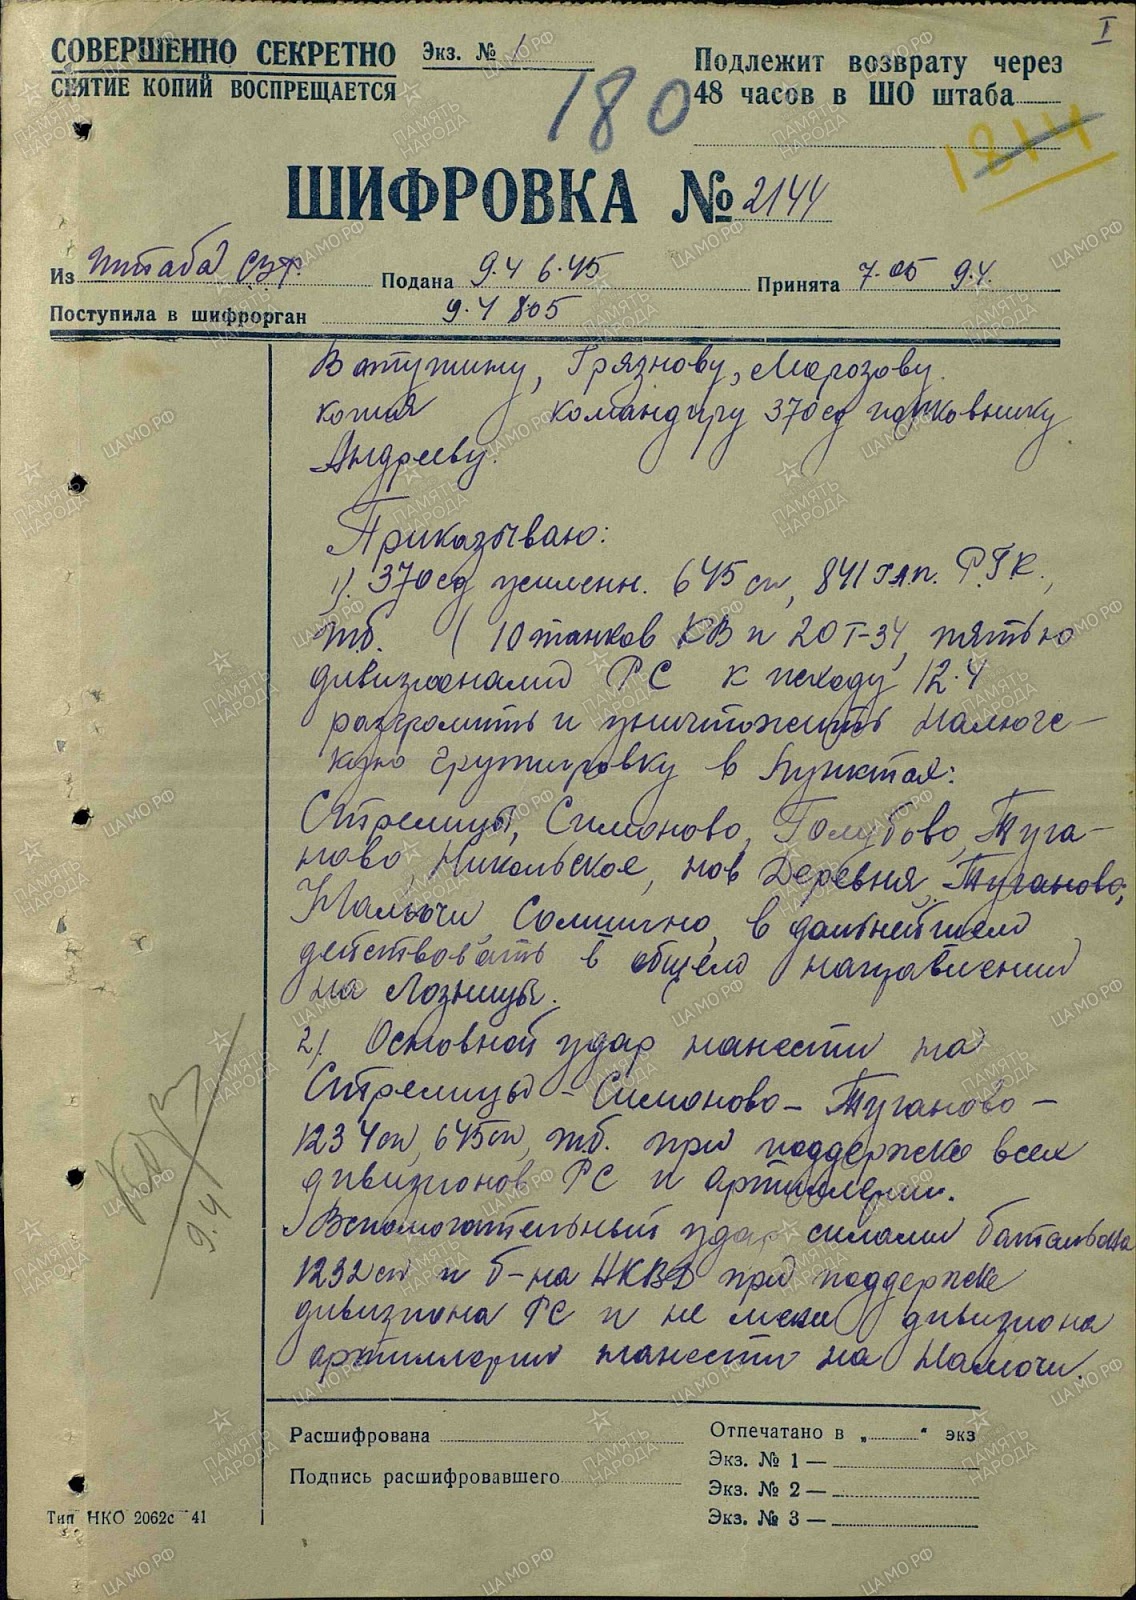 I
СОВЕРШЕННО СЕКРЕТНО Экз. № 1
СНЯТИЕ КОПИЙ ВОСПРЕЩАЕТСЯ
Подлежит возврату через
48 часов в ШО штаба
180
1814
ШИФРОВКА № 2144
Из штаба СЗФ. Подана 9.4 6.45 Принята 7.05 9.4.
Поступила в шифрорган 9.4 8.05
Ватутину, Грязнову, Морозову.
копия командиру 370 сд полковнику
Андрееву.
Приказываю:
1). 370 сд усиленн. 645 сп, 841 гап. РГК.,
тб. (10 танков КВ и 20 Т-34, пятью
дивизионами РС к исходу 12.4
разгромить и уничтожить Налюче-
кую группировку в пунктах:
Стрелицы, Симоново, Голубово, Туга-
ново, Никольское, нов Деревня, Туганово,
Налючи, Сомшино, в дальнейшем
действовать в общем направлении
на Лозницы.
2). Основной удар нанести на
Стрелицы - Симоново - Туганово -
1234 сп, 645 сп, тб. при поддержке всех
дивизионов РС и артиллерии.
Вспомогательный удар силами батальона
1232 сп и б-на НКВД при поддержке
дивизиона РС и не менее дивизиона
артиллерии нанести на Налючи.
9.4
Расшифрована
Подпись расшифровавшего
Отпечатано в „ “ экз
Экз. № 1 —
Экз. № 2 —
Экз. № 3 —
Тип НКО 2062с 41
ПАМЯТЬ НАРОДА
ЦАМО.РФ